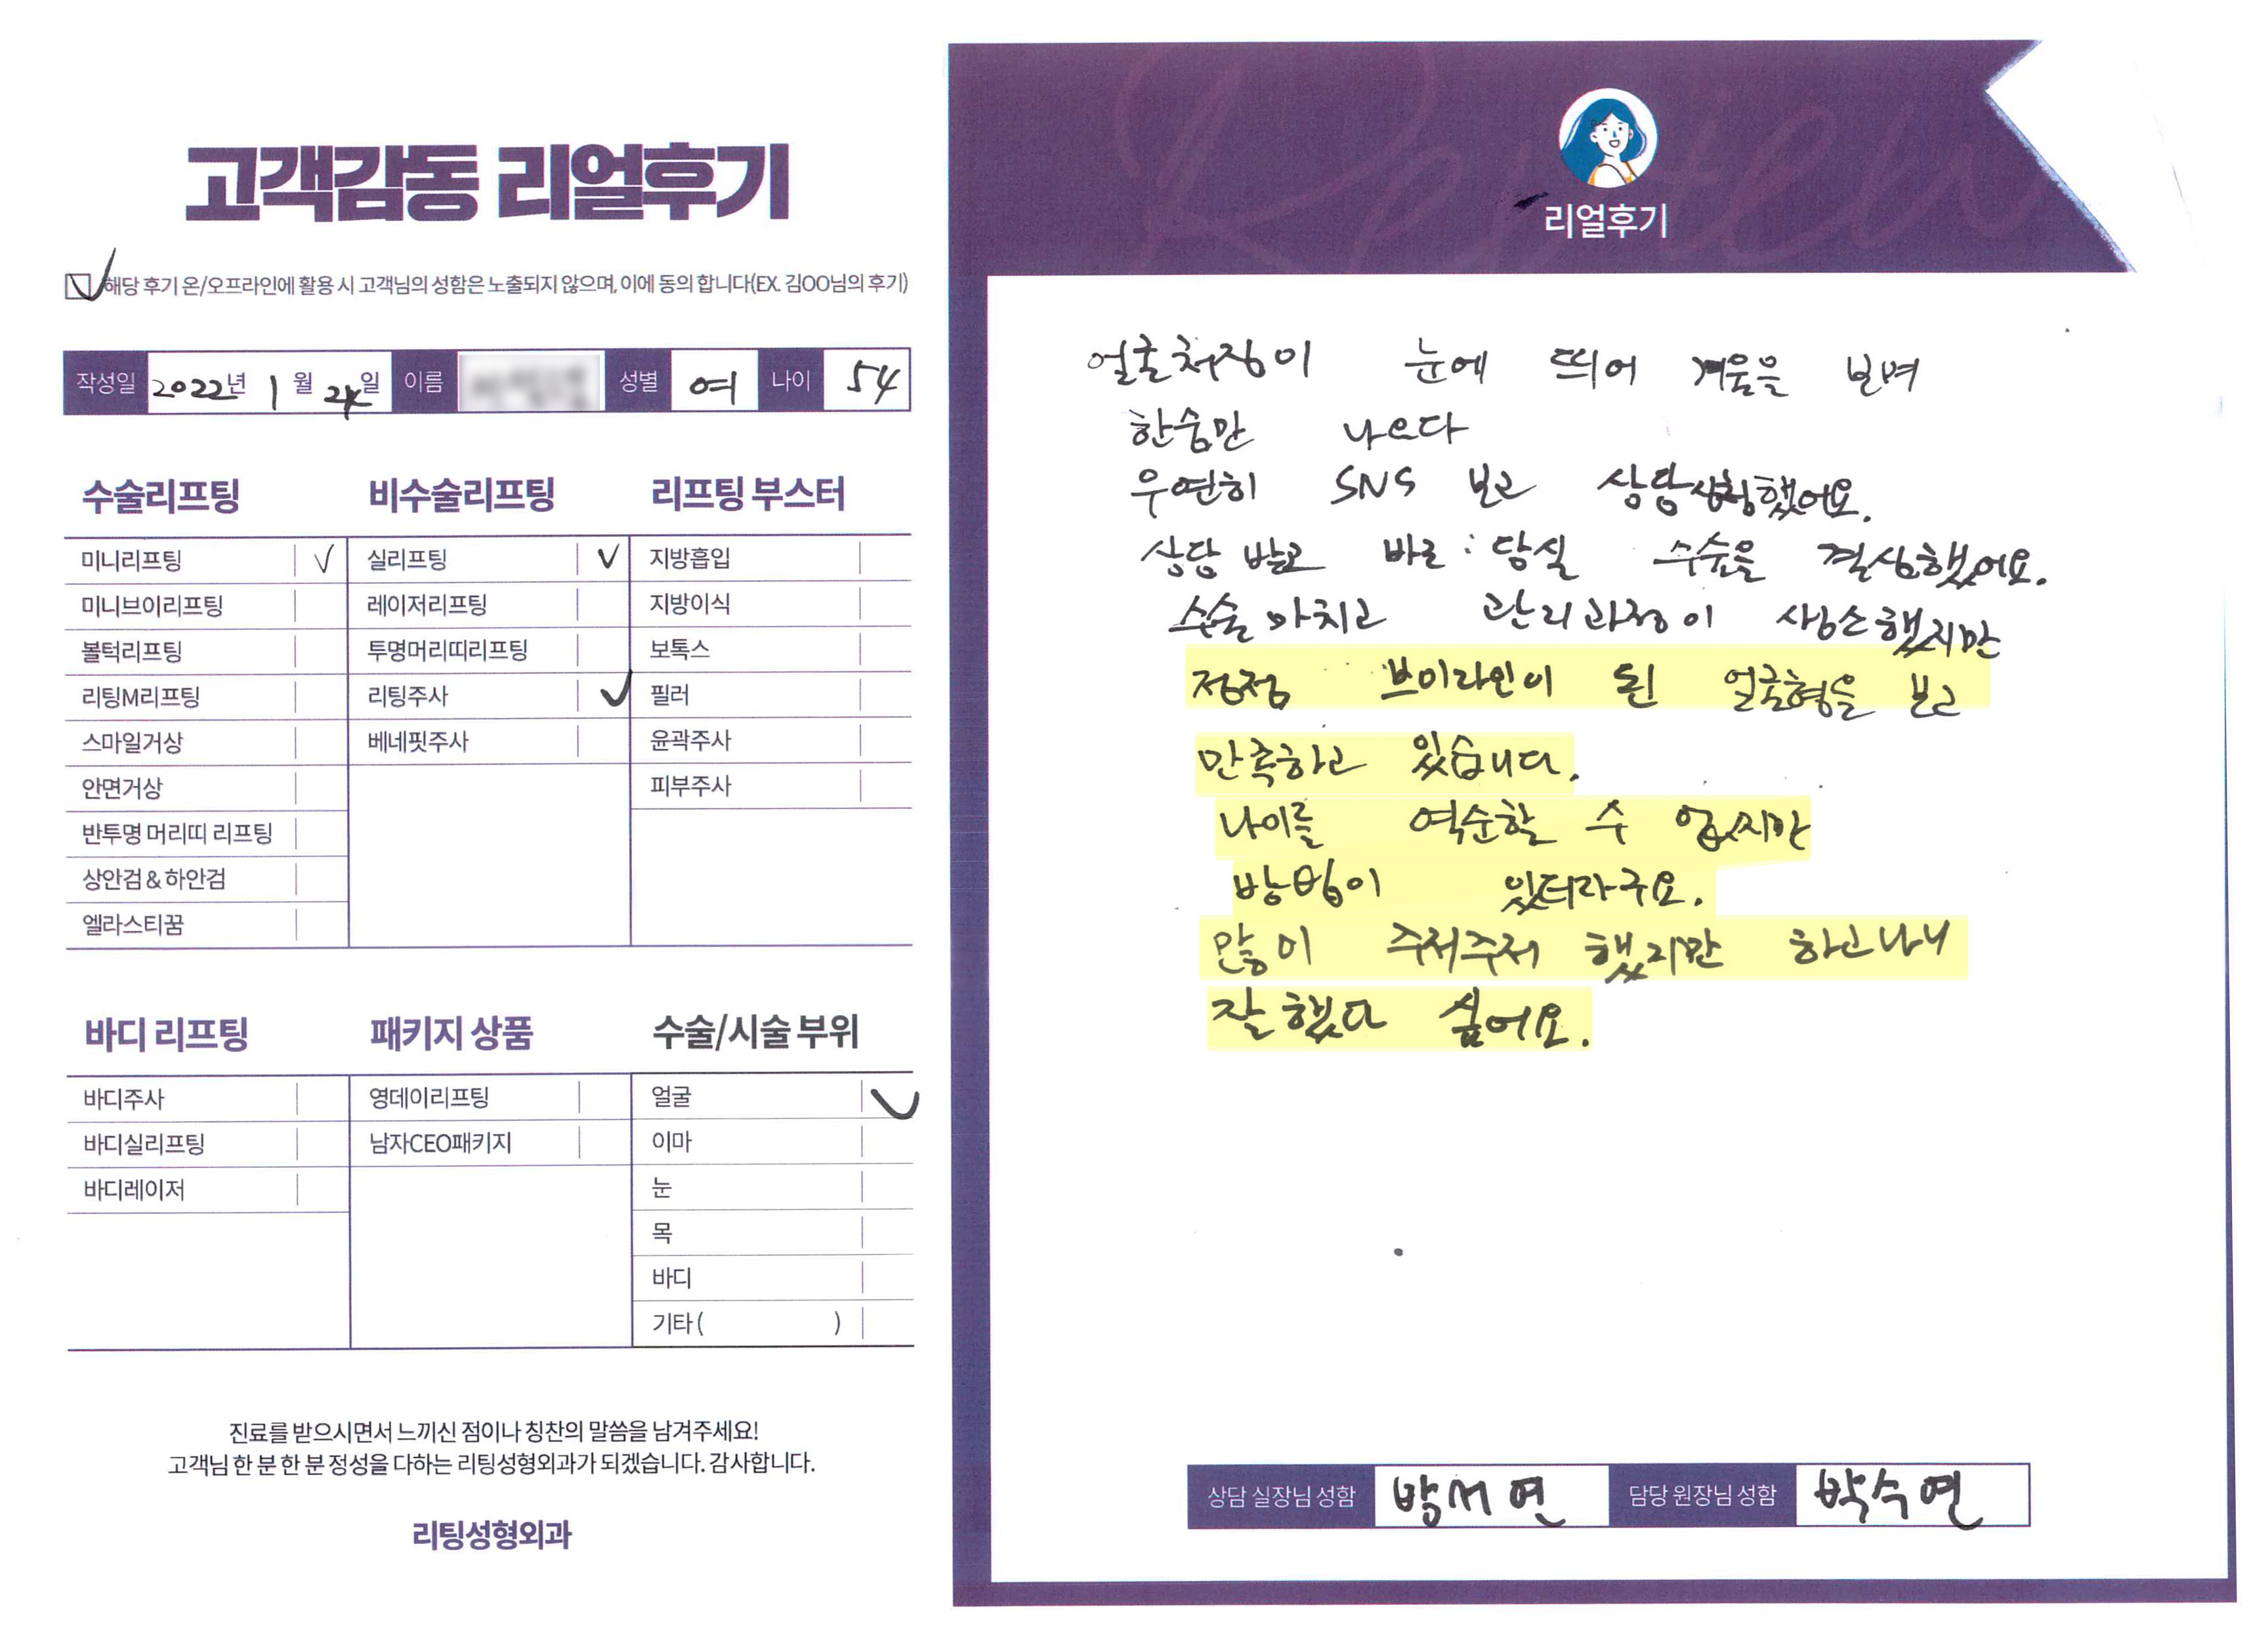 고객감동 리얼후기
해당 후기 온/오프라인에 활용 시 고객님의 성함은 노출되지 않으며, 이에 동의 합니다(EX. 김OO님의 후기)
작성일 2022년 1월 24일 이름 성별 여 나이 54
수술리프팅
미니리프팅
미니브이리프팅
볼턱리프팅
리팅M리프팅
스마일거상
안면거상
반투명 머리띠 리프팅
상안검 & 하안검
엘라스티꿈
비수술리프팅
실리프팅
레이저리프팅
투명머리띠리프팅
리팅주사
베네핏주사
리프팅 부스터
지방흡입
지방이식
보톡스
필러
윤곽주사
피부주사
바디 리프팅
바디주사
바디실리프팅
바디레이저
패키지 상품
영데이리프팅
남자CEO패키지
수술/시술 부위
얼굴
이마
눈
목
바디
기타 ( )
진료를 받으시면서 느끼신 점이나 칭찬의 말씀을 남겨주세요!
고객님 한 분 한 분 정성을 다하는 리팅성형외과가 되겠습니다. 감사합니다.
리팅성형외과
Review
리얼후기
얼굴처짐이 눈에 띄어 거울을 보며
한숨만 나오다
우연히 SNS 보고 상담신청했어요.
상담 받고 바로 당일 수술을 결정했어요.
수술 마치고 관리과정이 생소했지만
점점 브이라인이 된 얼굴형을 보고
만족하고 있습니다.
나이를 역순할 수 없지만
방법이 있더라구요.
많이 주저주저 했지만 하고나니
잘했다 싶어요.
상담 실장님 성함 박서연 담당 원장님 성함 박수연